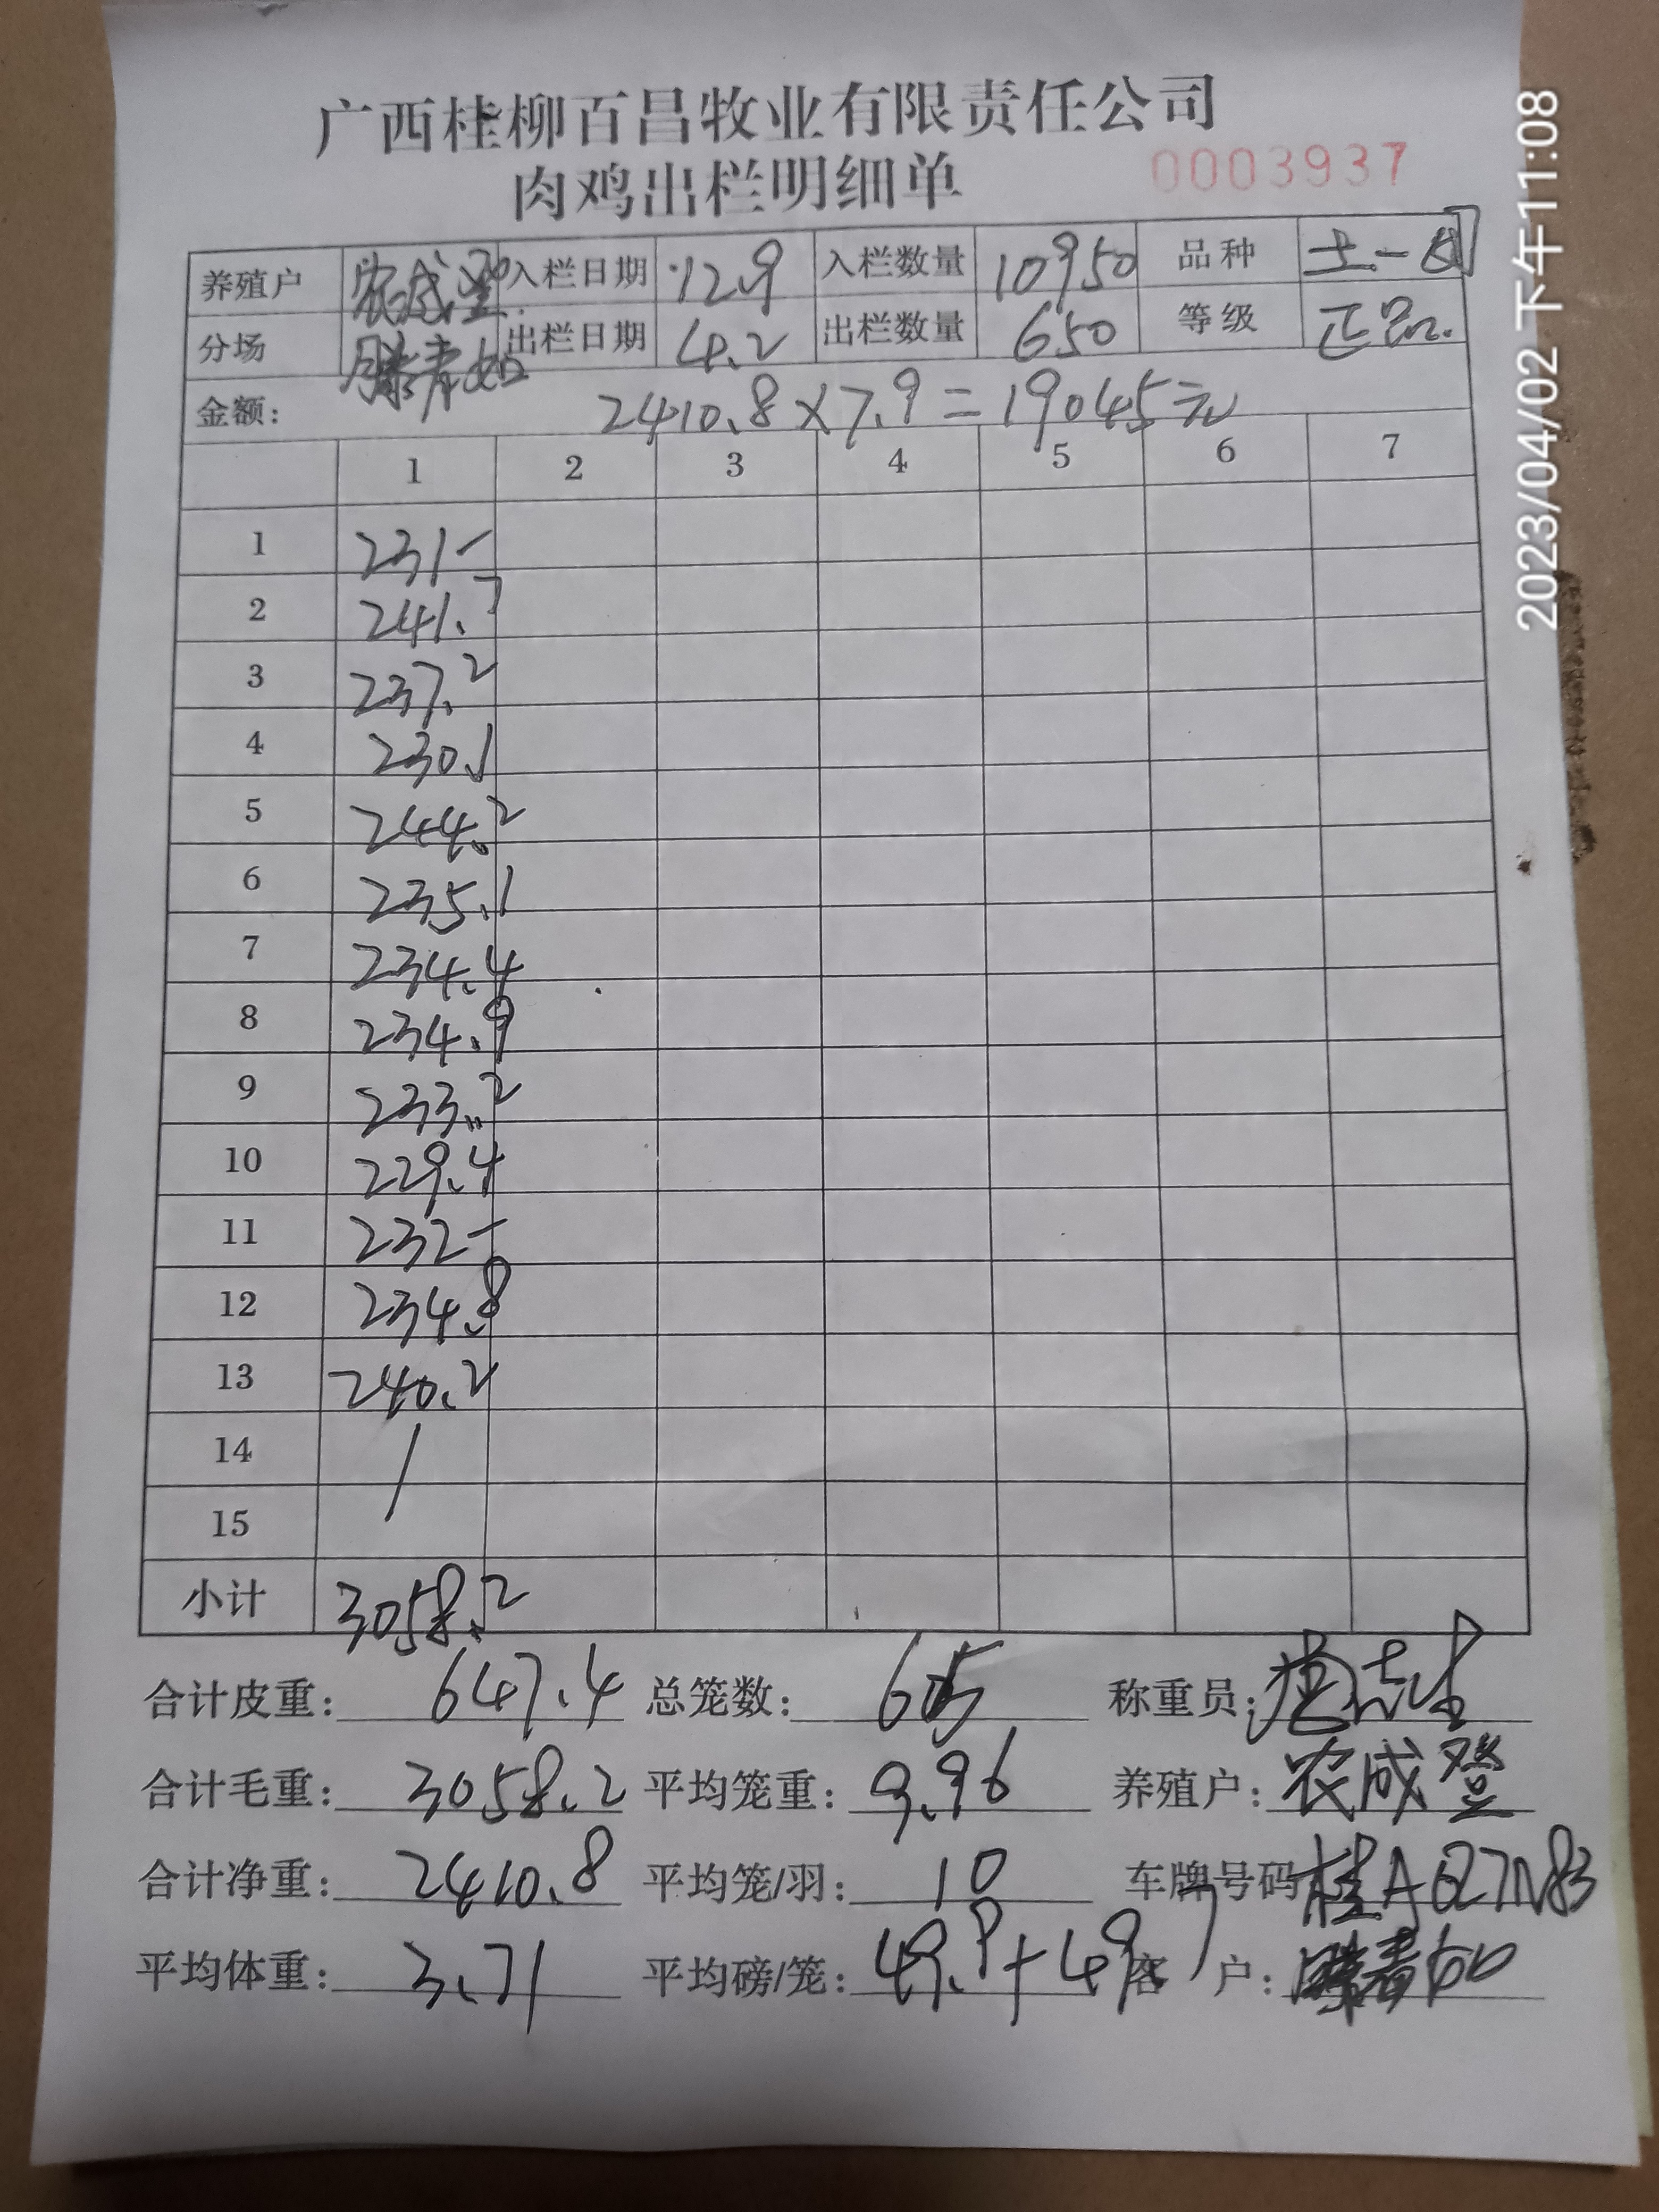 广西桂柳百昌牧业有限责任公司
肉鸡出栏明细单 0003937
养殖户 农成登 入栏日期 12.9 入栏数量 10950 品种 土一
分场 滕青如 出栏日期 4.2 出栏数量 650 等级 正品.
金额: 2410.8×7.9=19045元
1 2 3 4 5 6 7
1 231-
2 241.7
3 237.2
4 230.1
5 244.2
6 235.1
7 234.4
8 234.9
9 233.2
10 229.4
11 232-
12 234.8
13 240.2
14 /
15
小计 3058.2
合计皮重: 647.4 总笼数: 65 称重员:
合计毛重: 3058.2 平均笼重: 9.96 养殖户: 农成登
合计净重: 2410.8 平均笼/羽: 10 车牌号码 桂A627N83
平均体重: 3.71 平均磅/笼: 49.9+49.7 客 户: 滕青如
2023/04/02 下午11:08